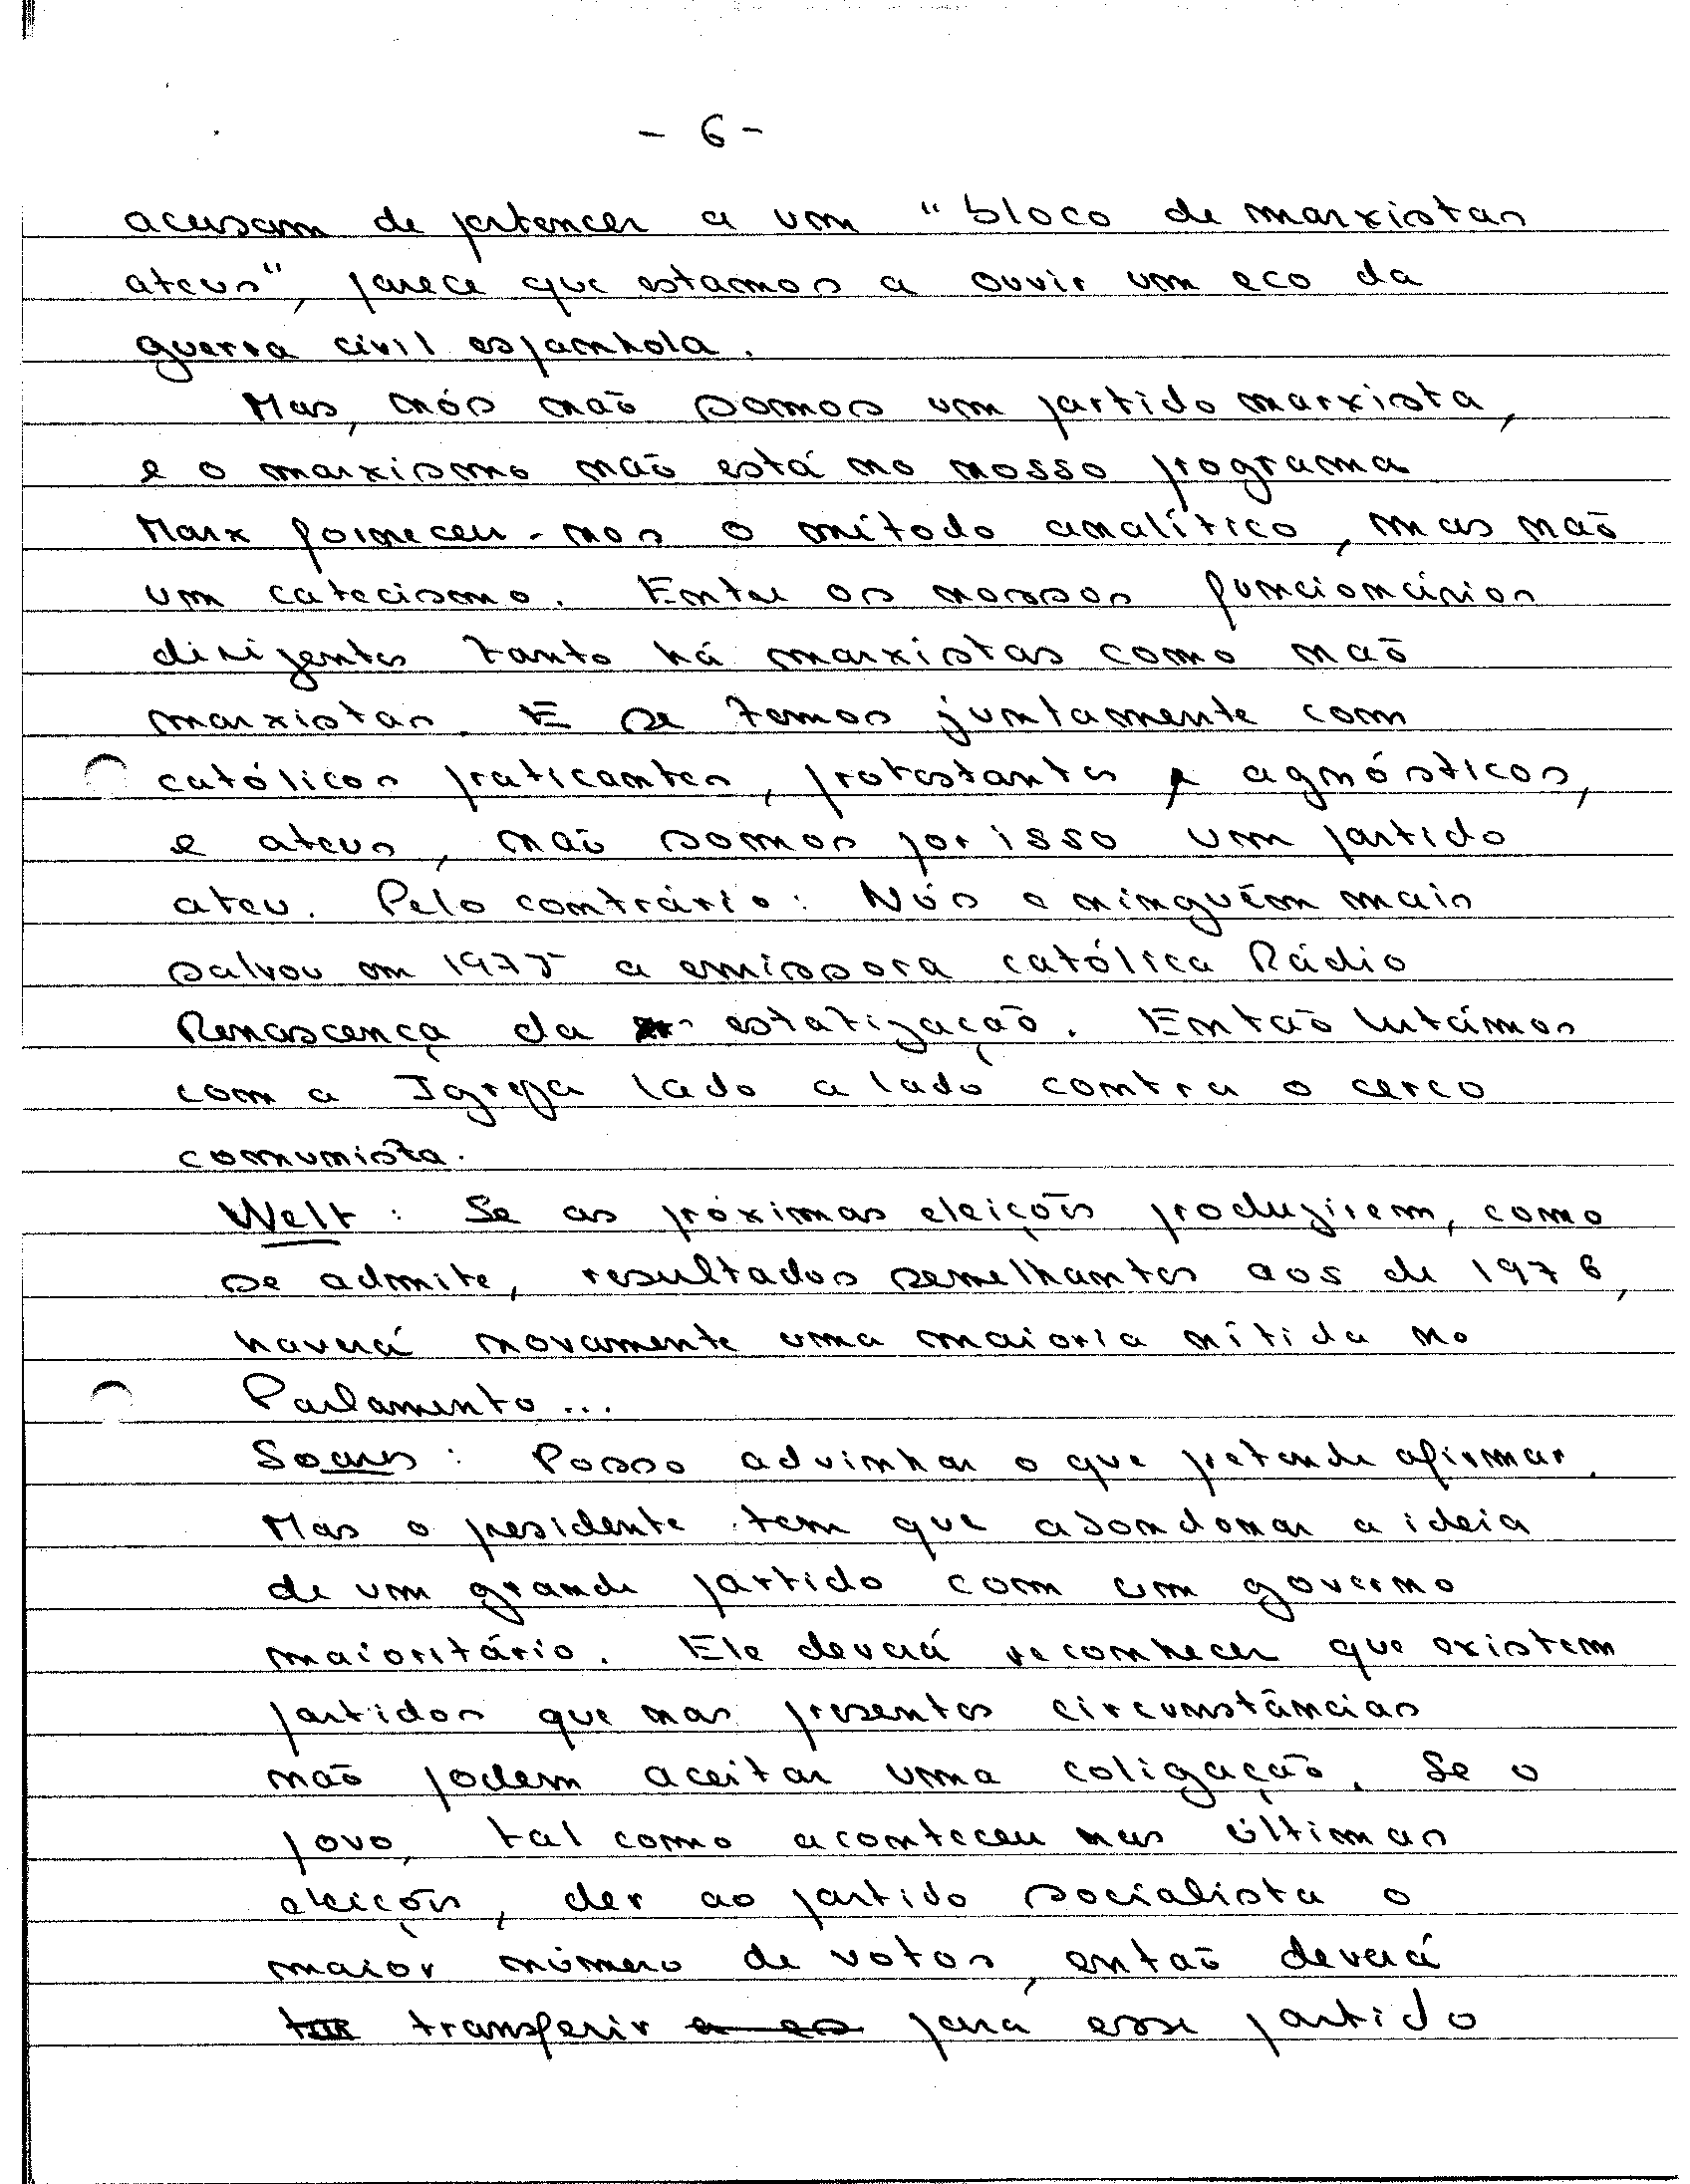 - 6 -
acusam de pertencer a um "bloco de marxistas
ateus", parece que estamos a ouvir um eco da
guerra civil espanhola.
Mas, nós não somos um partido marxista,
e o marxismo não está no nosso programa
Marx forneceu-nos o método analítico, mas não
um catecismo. Entre os nossos funcionários
dirigentes tanto há marxistas como não
marxistas. E se temos juntamente com
católicos praticantes, protestantes e agnósticos,
e ateus, não somos por isso um partido
ateu. Pelo contrário: Nós e ninguém mais
salvou em 1975 a emissora católica Rádio
Renascença da estatização. Então lutámos
com a Igreja lado a lado contra o cerco
comunista.
Welt: Se as próximas eleições produzirem, como
se admite, resultados semelhantes aos de 1976,
haverá novamente uma maioria nítida no
Parlamento...
Soares: Posso advinhar o que pretende afirmar.
Mas o presidente tem que abandonar a ideia
de um grande partido com um governo
maioritário. Ele deverá reconhecer que existem
partidos que nas presentes circunstâncias
não podem aceitar uma coligação. Se o
povo, tal como aconteceu nas últimas
eleições, der ao partido socialista o
maior número de votos, então deverá
transferir para esse partido